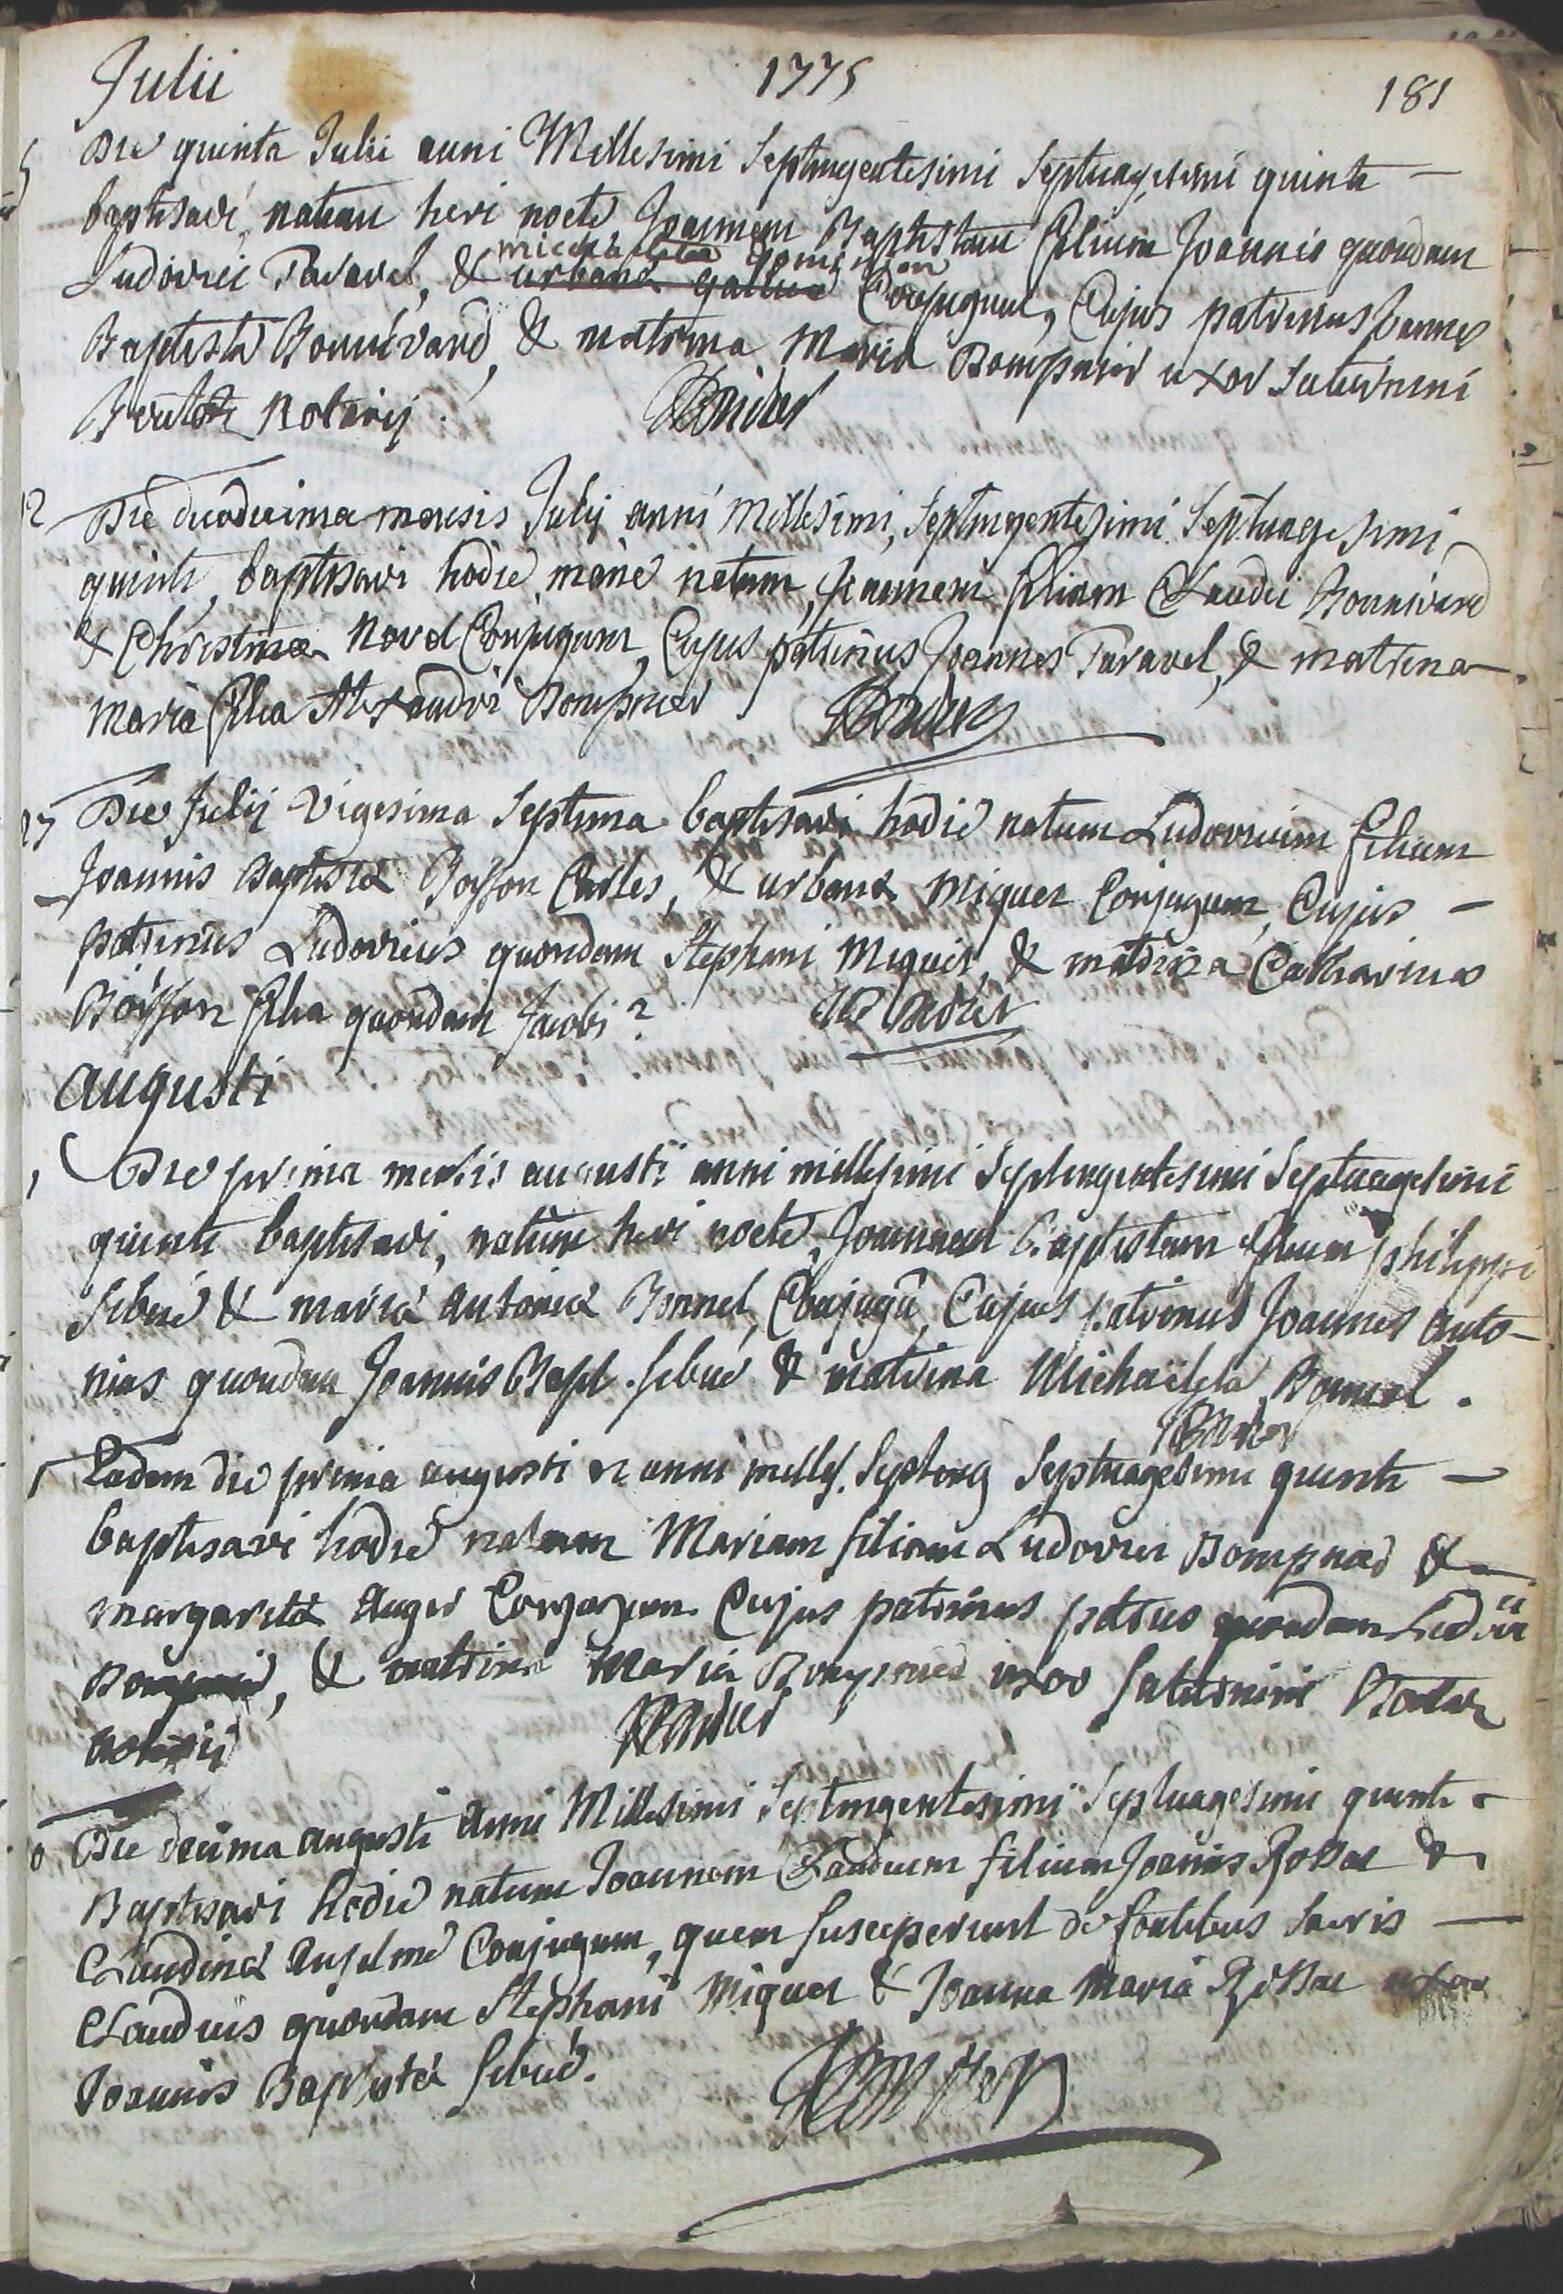 Julii 1775 181
5 Die quinta Julii anni Millesimi Septingentesimi Septuagesimi quinti —
baptisavi, natum heri nocte Joannem Baptistam filium Joannis quondam
michaelae
Ludovici Taravel, & urbanae gallice Conjugum, Cujus patrinus Joannes
Baptista Bonnivard, & matrina Maria Bompnier uxor Saturnini
notarij.
12 Die duodecima mensis Julij anni Millesimi, Septingentesimi Septuagesimi
quinti, baptisavi hodie mane natum, Joannem filium Claudii Bonnivard
& Christinae Novel Conjugum, Cujus patrinus Joannes Taravel, & matrina
Maria filia Alexandri Bompnier
27 Die Julij Vigesima Septima baptisavi hodie natum Ludovicum filium
Joannis Baptistae Boisson Charles, & urbanae Miquer Conjugum, Cujus —
patrinus Ludovicus quondam Stephani Miquer, & matrina Catharina
Boisson filia quondam Jacobi
Augusti
1 Die prima mensis augusti anni millesimi Septingentesimi Septuagesimi
quinti baptisavi, natum heri nocte, Joannem Baptistam filium philippi
Sibué & mariae Antoniae Bonnel, Conjugū, Cujus patrinus Joannes Anto-
nius quondam Joannis Bapt. Sibué & matrina Michaëlela Bonnel.
1 Eadem die prima augusti anni milles. Septing Septuagesimi quinti —
baptisavi hodie natam Mariam filiam Ludovici Bompnier &
margaritae Auger Conjugum Cujus patrinus petrus quondam Ludovici
Bompnier, & matrina Maria Bompnier uxor Saturnini
notarij
Die decima augusti Anni Millesimi Septingentesimi Septuagesimi quinti
Baptisavi hodie natum Joannem Claudium filium Joannis Rossat &
Claudinae Anselme Conjugum, quem susceperunt de fontibus Sacris —
Claudius quondam Stephani Miquer & Joanna Maria Rossat uxor
Joannis Baptistae Sibué.